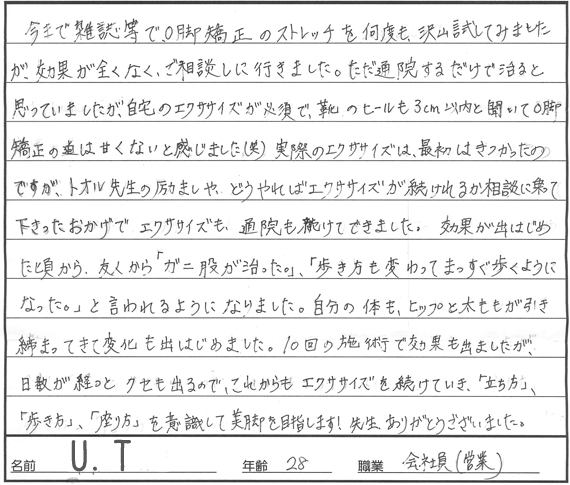 今まで雑誌等で、O脚矯正のストレッチを何度も、沢山試してみました
が、効果が全くなく、ご相談しに行きました。ただ通院するだけで治ると
思っていましたが、自宅のエクササイズが必須で、靴のヒールも3cm以内と聞いてO脚
矯正の道は甘くないと感じました(笑) 実際のエクササイズは、最初はきつかったの
ですが、トオル先生の励ましや、どうやればエクササイズが続けれるか相談に乗って
下さったおかげで エクササイズも、通院も続けてできました。 効果が出はじめ
た頃から、友人から「ガニ股が治った。」、「歩き方も変わってまっすぐ歩くように
なった。」と言われるようになりました。自分の体も、ヒップと太ももが引き
締まってきて変化も出はじめました。10回の施術で効果も出ましたが、
日数が経つと クセも出るので、これからも エクササイズを続けていき、「立ち方」、
「歩き方」、「座り方」を意識して美脚を目指します! 先生、ありがとうございました。
名前 U.T 年齢 28 職業 会社員(営業)